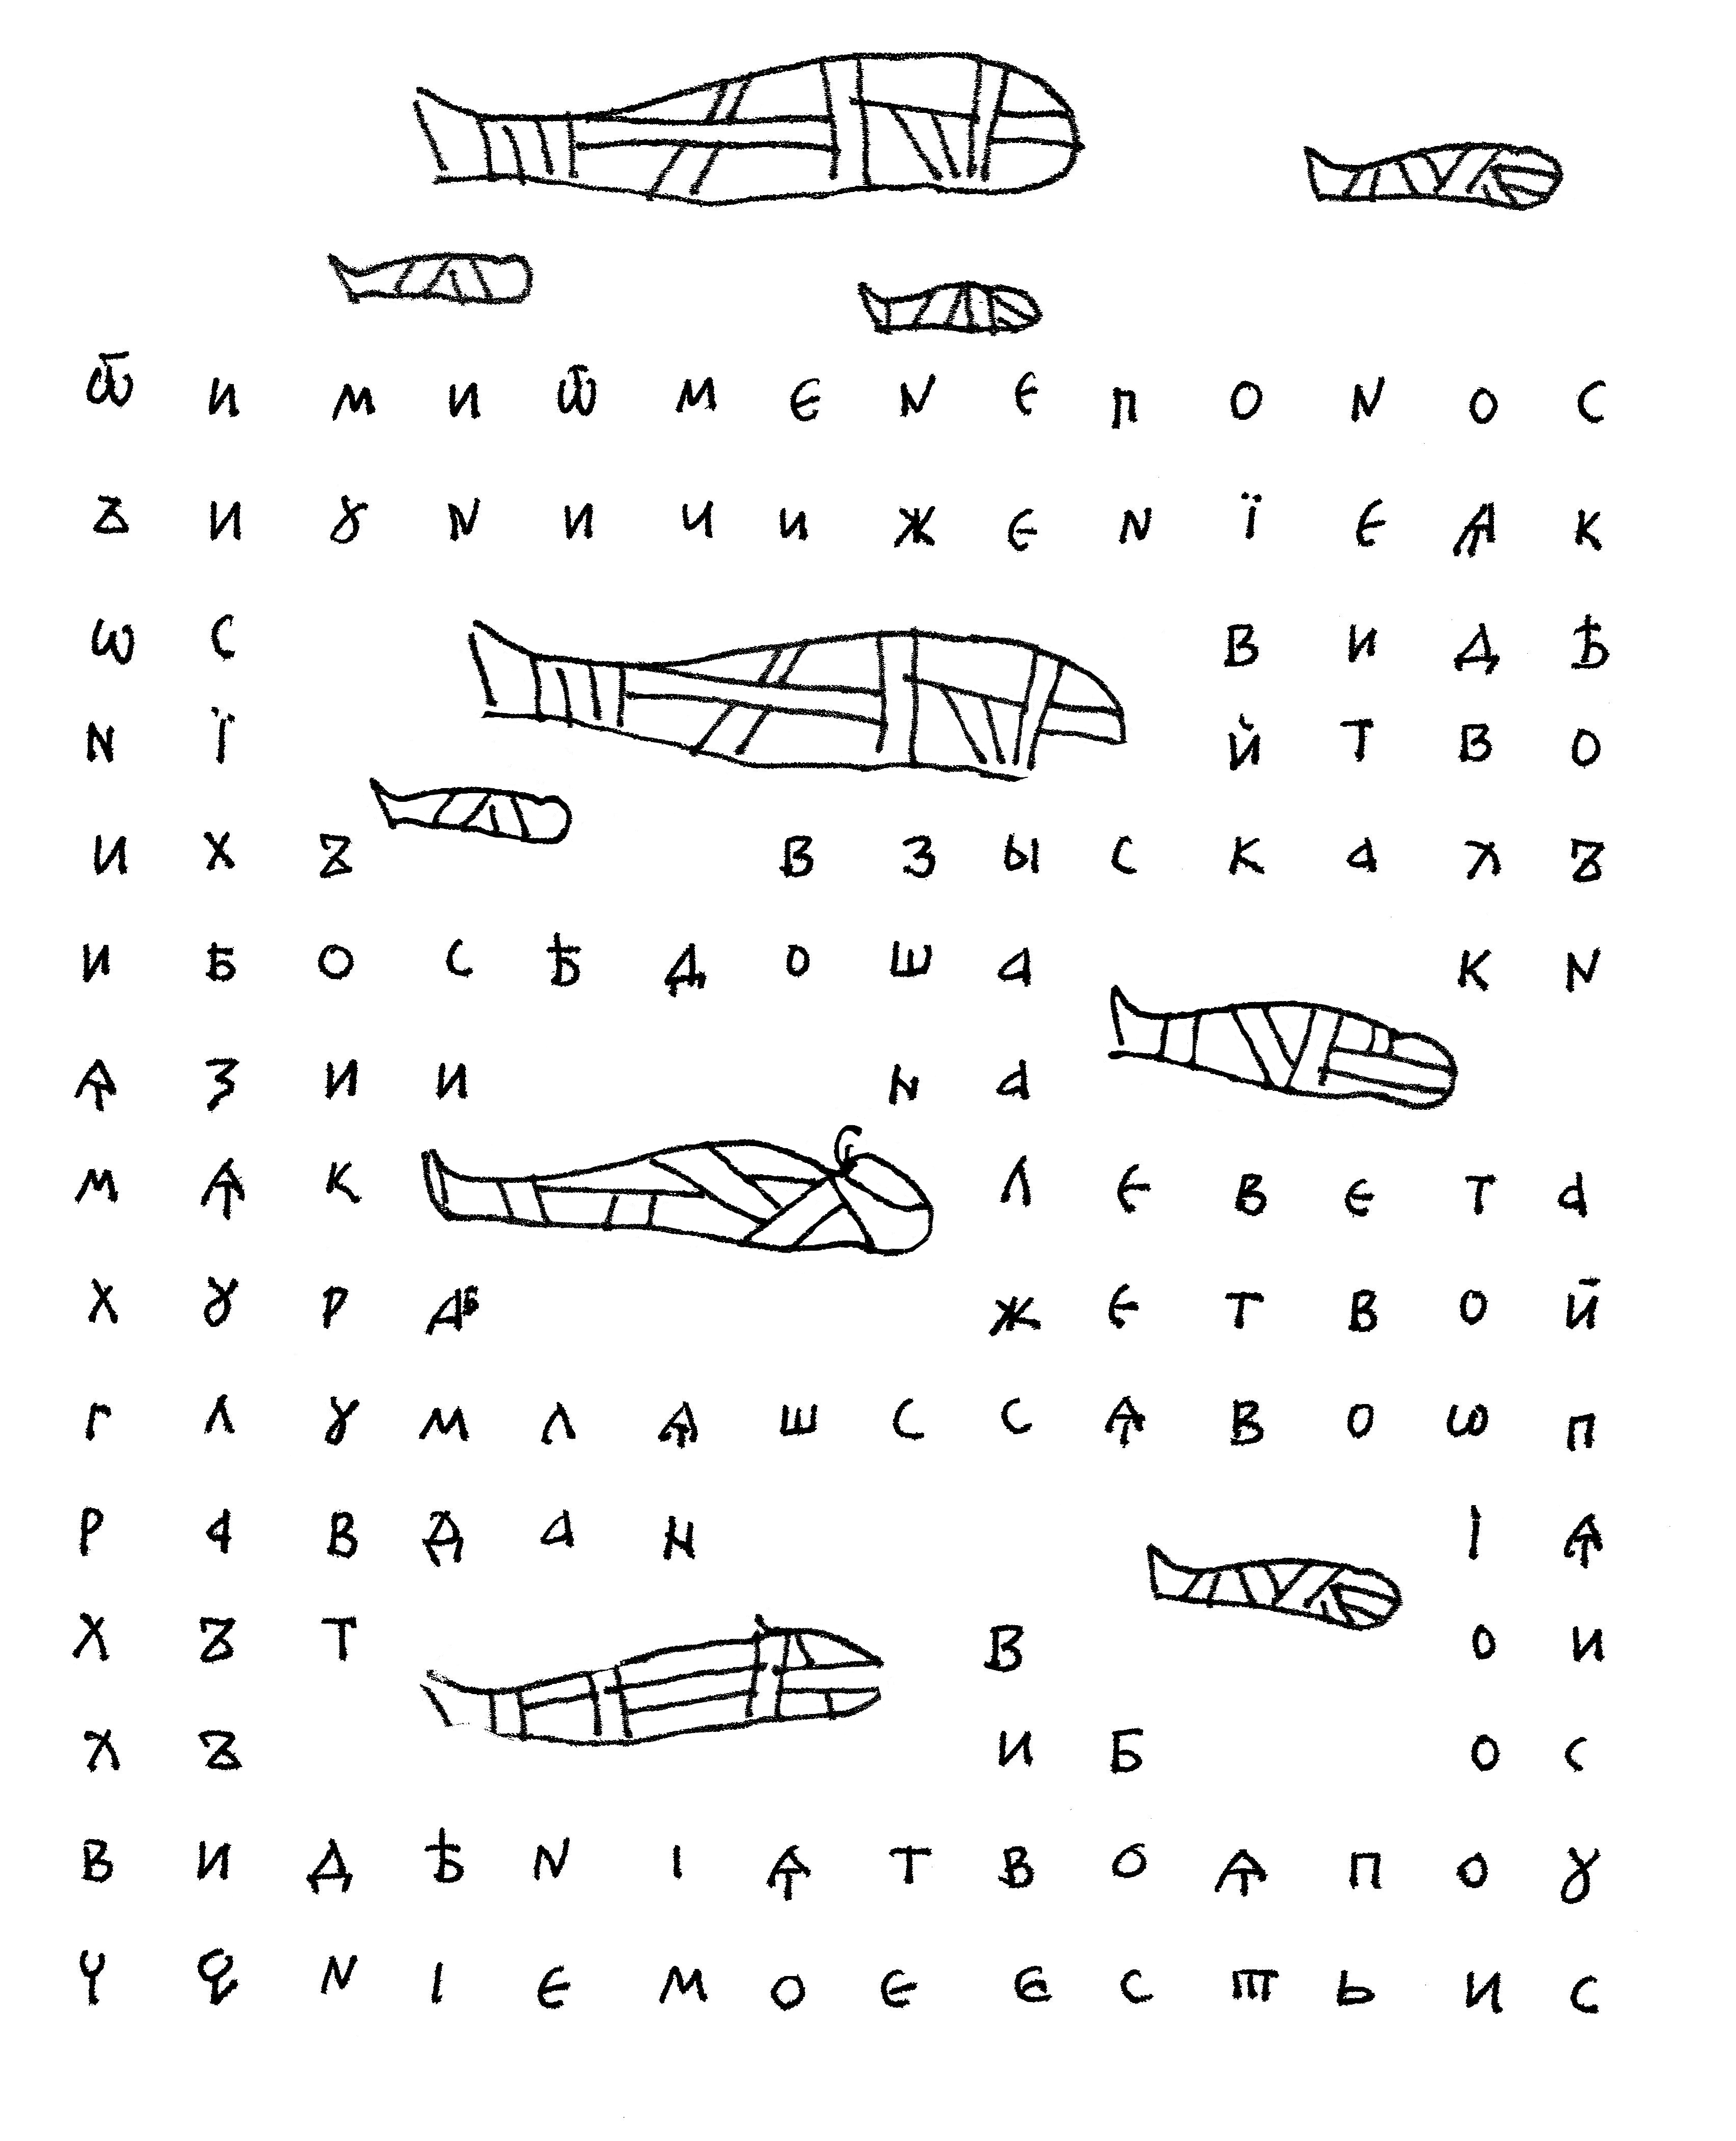 Ѿ И М И Ѿ М Є N Є П О N О С
Ꙁ И Ꙋ N И Ч И Ж Є N Ї Є Ѧ К
Ѡ С В И Д Ѣ
N Ї Й Т В О
И Х Ꙁ В З Ы С К А Х Ꙁ
И Б О С Ѣ Д О Ш А К N
Ѧ З И И Н А
М Ѧ К Л Є В Є Т А
Х Ꙋ Р А Ж Є Т В О Й
Г Л Ꙋ М Л Ѧ Ш С С Ѧ В О Ѡ П
Р А В Д А Н І Ѧ
Х Ꙁ Т В О И
Х Ꙁ И Б О С
В И Д Ѣ N І Ѧ Т В О Ѧ П О Ꙋ
Ч N І Є М О Є Є С Т Ь И С